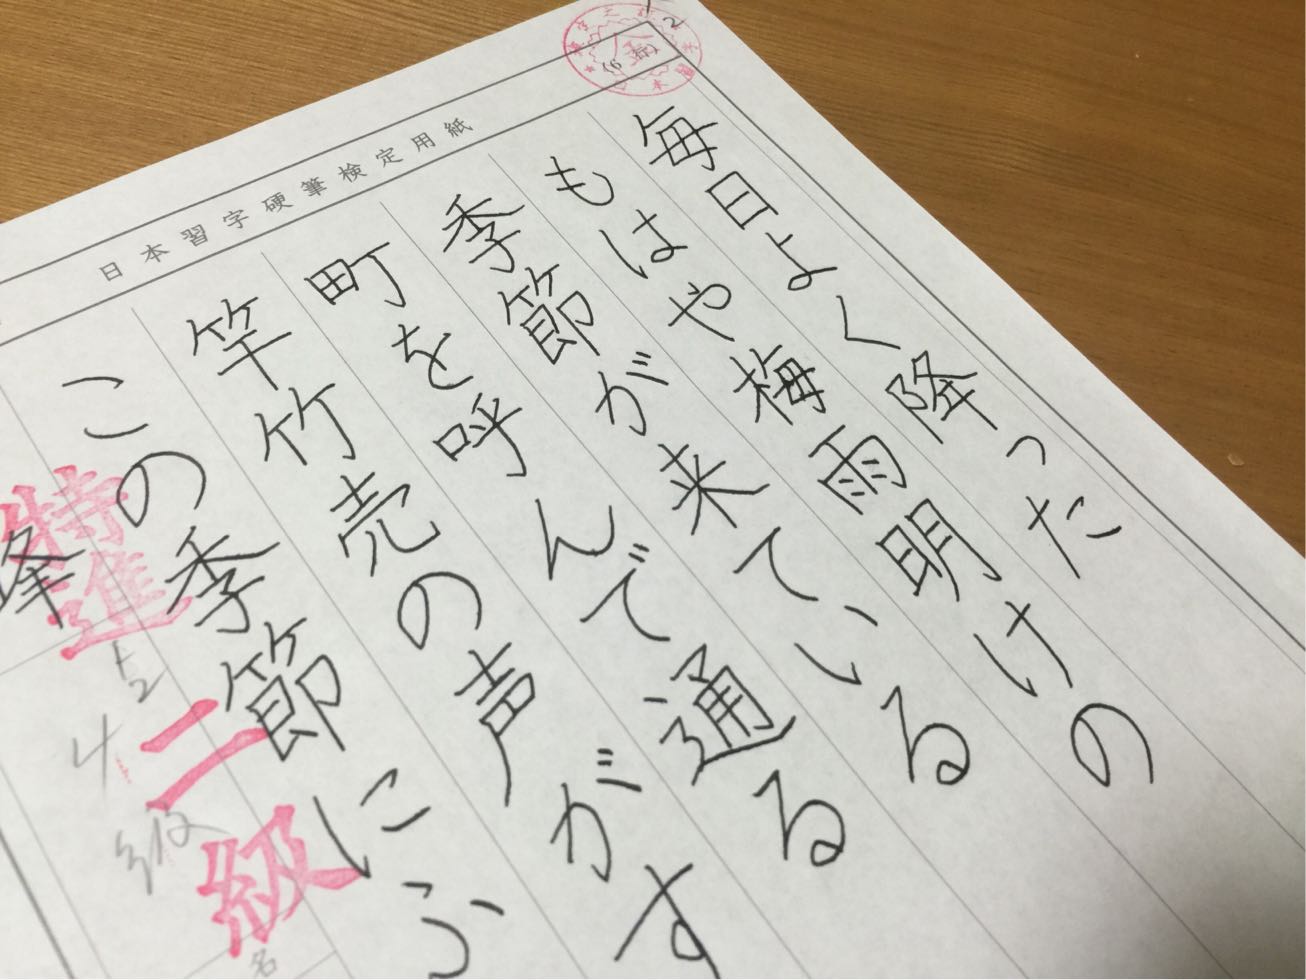 日本習字硬筆検定用紙
毎日よく降ったの
もはや梅雨明けの
季節が来ている
町を呼んで通る
竿竹売の声がす
この季節にふ
特進
二級
峰
4級
名